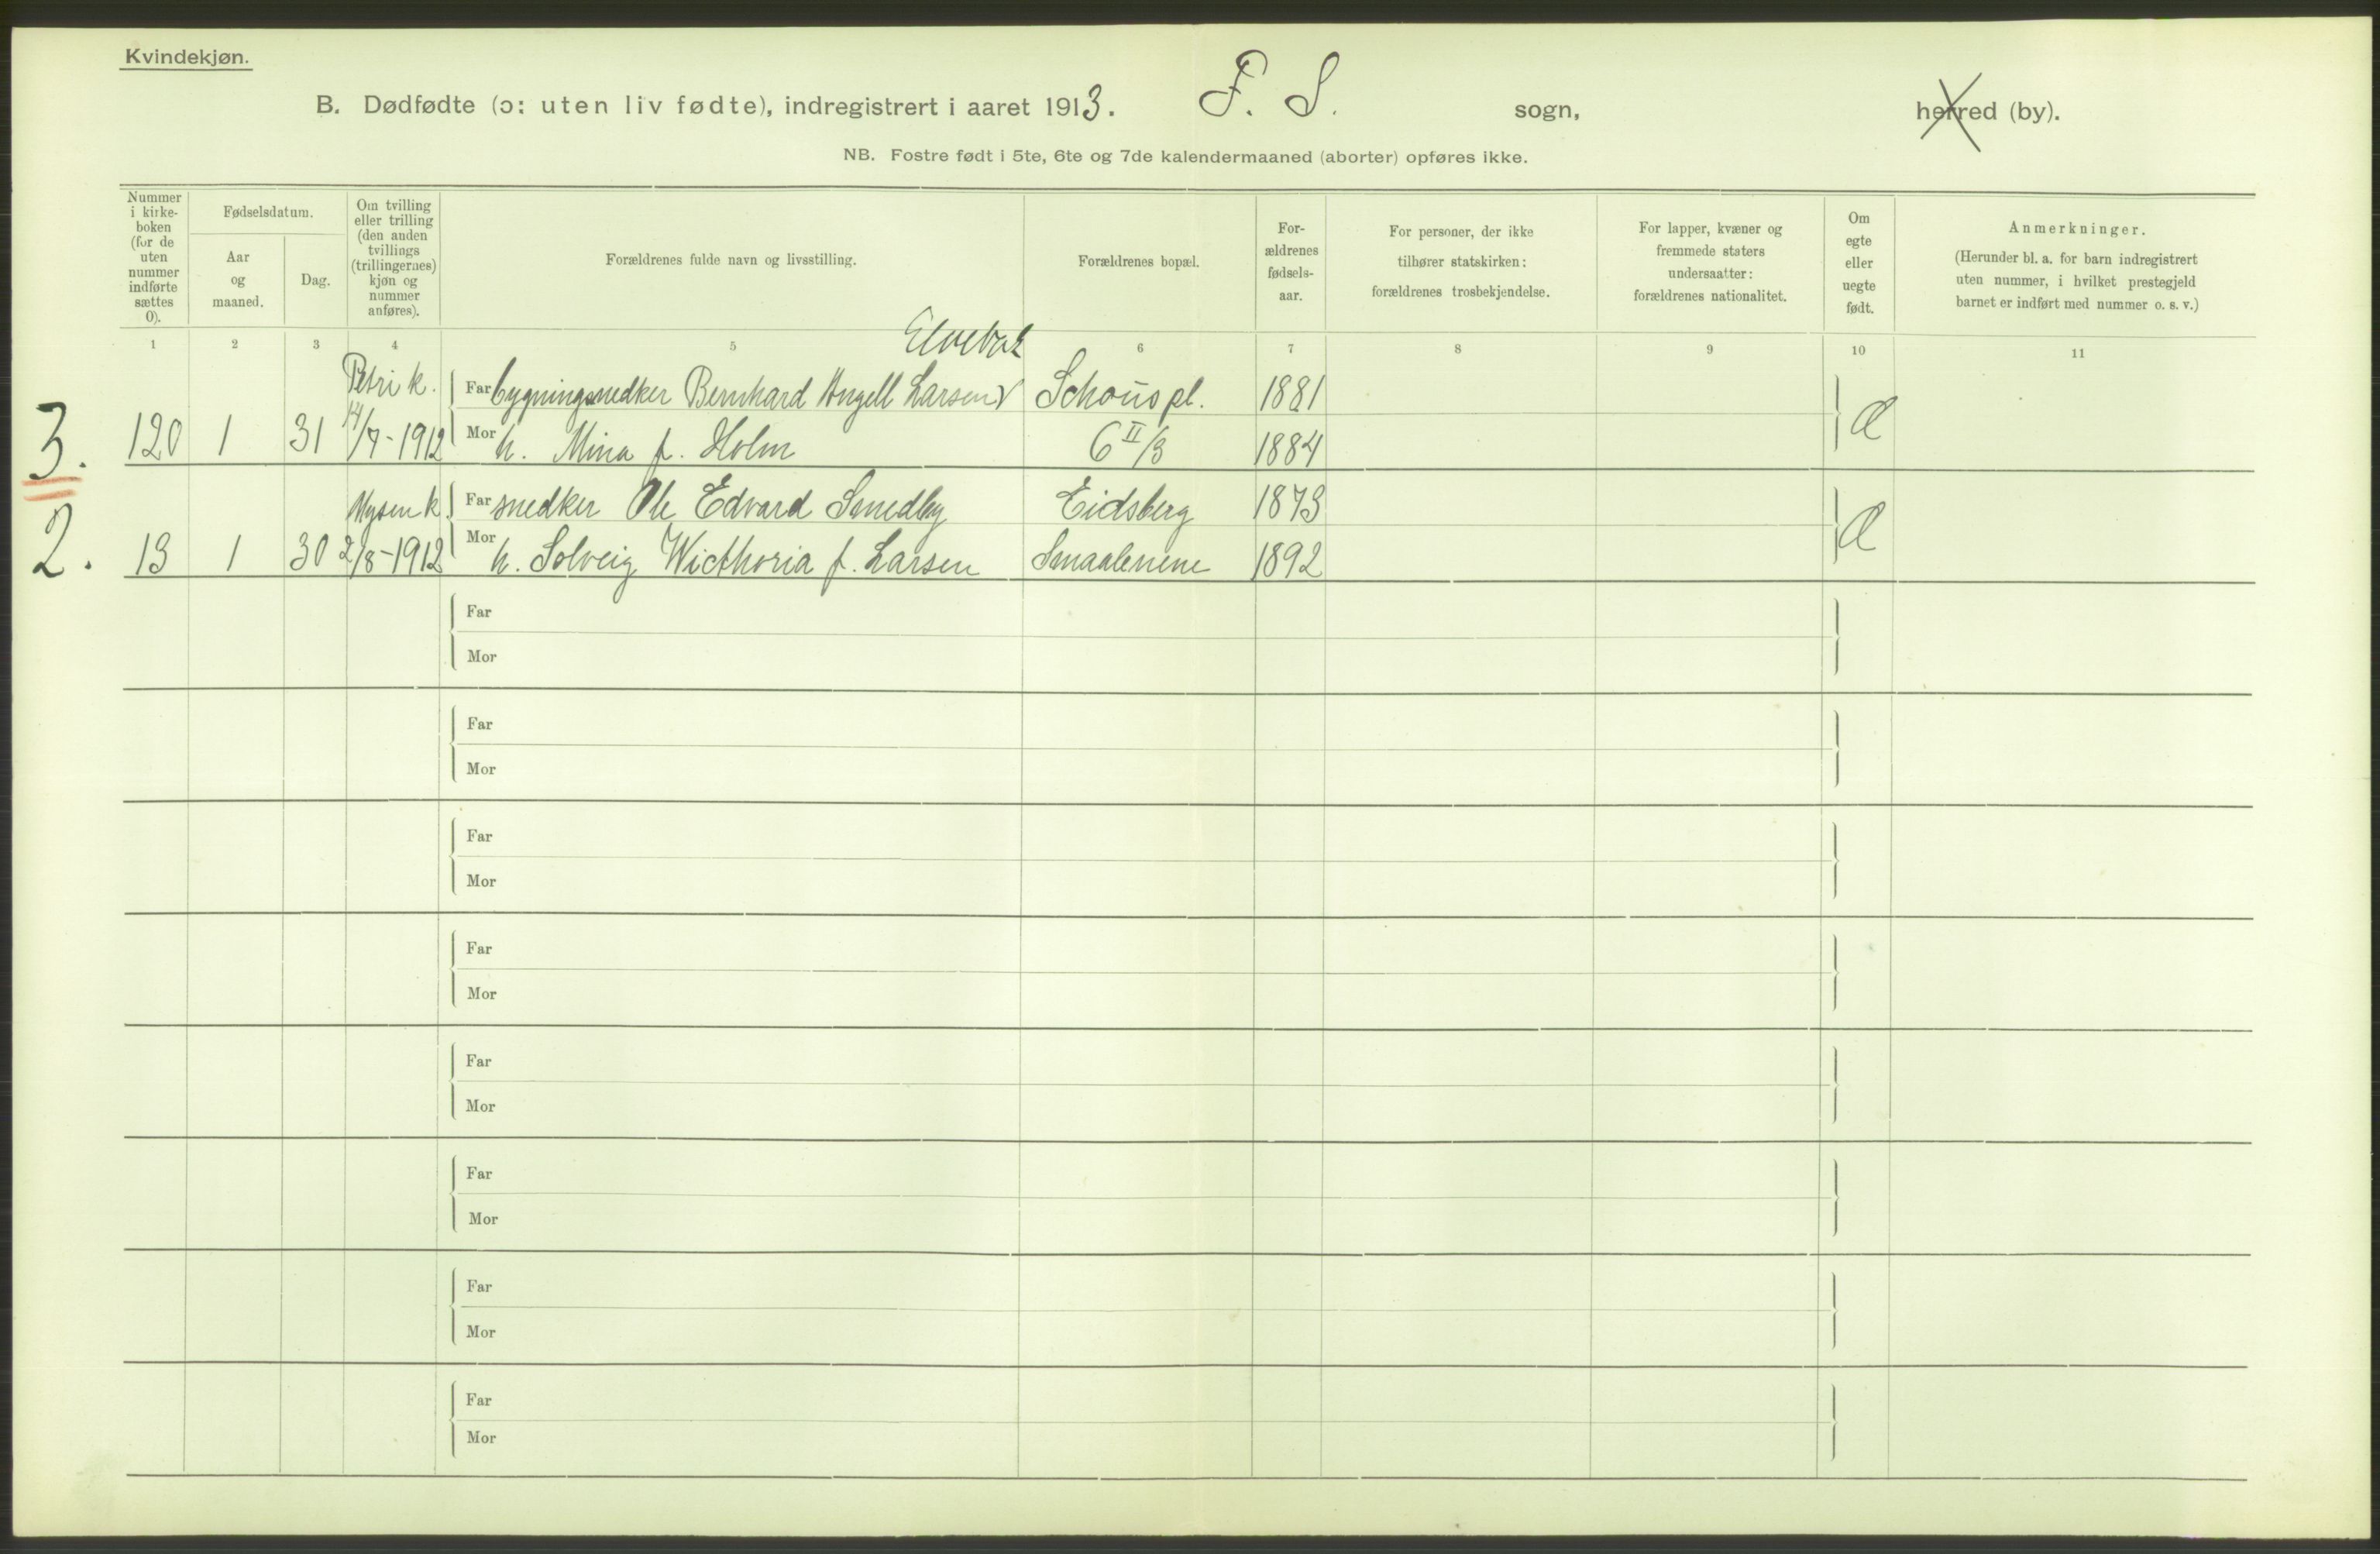 Kvindekjøn.
B. Dødfødte (ɔ: uten liv fødte), indregistrert i aaret 1913. F. S. sogn, herred (by).
NB. Fostre født i 5te, 6te og 7de kalendermaaned (aborter) opføres ikke.
Nummer
i kirke-
boken
(for de
uten
nummer
indførte
sættes
0).
Fødselsdatum.
Aar
og
maaned.
Dag.
Om tvilling
eller trilling
(den anden
tvillings
(trillingernes)
kjøn og
nummer
anføres).
Forældrenes fulde navn og livsstilling.
Forældrenes bopæl.
For-
ældrenes
fødsels-
aar.
For personer, der ikke
tilhører statskirken:
forældrenes trosbekjendelse.
For lapper, kvæner og
fremmede staters
undersaatter:
forældrenes nationalitet.
Om
egte
eller
uegte
født.
Anmerkninger.
(Herunder bl. a. for barn indregistrert
uten nummer, i hvilket prestegjeld
barnet er indført med nummer o. s. v.)
1 2 3 4 5 6 7 8 9 10 11
Elvebak
Petri k. Far bygningsnedker Bernhard Angell Larsen Schous pl. 1881
3. 120 1 31 14/7-1912 Mor h. Mina f. Holm 6 II/3 1884 Æ
Mysen k. Far snedker Ole Edvard Smedby Eidsberg 1873
2. 13 1 30 2/8-1912 Mor h. Solveig Wicthoria f. Larsen Smaalenene 1892 Æ
Far
Mor
Far
Mor
Far
Mor
Far
Mor
Far
Mor
Far
Mor
Far
Mor
Far
Mor